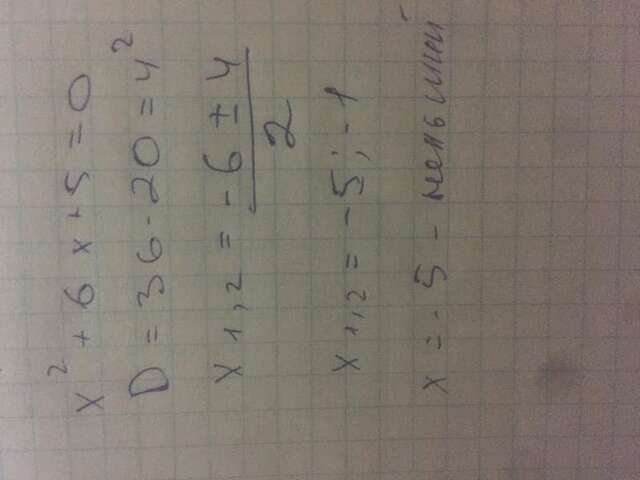 x² + 6x + 5 = 0
D = 36 - 20 = 4²
x1,2 = -6 ± 4 / 2
x1,2 = -5; -1
x = -5 - меньший